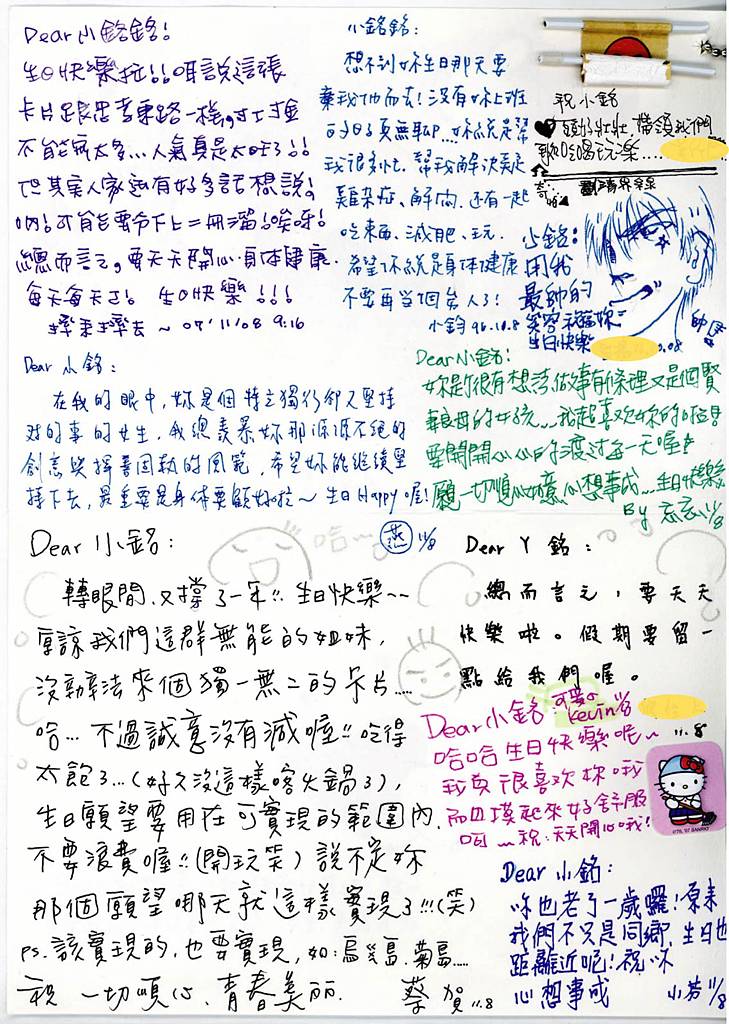 Dear 小銘銘:
生日快樂拉!!呵說這張
卡片跟忠孝東路一樣,寸土寸金
不能寫太多...人氣真是太旺了!!
但其實人家還有好多話想說!
總而言之,要天天開心.身體健康.
每天每天ㄛ! 生日快樂!!!
~ 07' 11/08 9:16
小銘銘:
想不到妳生日那天要
棄我們而去!沒有妳上班
的日子真無聊....妳總是幫
我很多忙.幫我解決疑
難雜症、解悶.還有一起
吃東西、減肥、玩.
希望你總是身體健康
不要再當個病人了!
小鈞 96.10.8
祝小銘
頭好壯壯,帶領我們
到處吃喝玩樂....
小銘!
用我
最帥的
笑容祝福妳
生日快樂
Dear 小銘:
在我的眼中,妳是個特立獨行卻又堅持
對的事的女生,我總羨慕妳那源源不絕的
創意與擇善固執的風範,希望妳能繼續堅
持下去,最重要是身體要顧好啦~ 生日Happy喔!
燕 11/8
Dear 小銘:
妳是個很有想法,做事有條理又是個賢
妻良母的女孩...我超喜歡妳的啦!!
要開開心心的渡過每一天喔!
願一切順心如意心想事成...生日快樂
By 忘忘 11/8
Dear 小銘:
轉眼間,又撐了一年!! 生日快樂~~
原諒我們這群無能的姐妹,
沒辦法來個獨一無二的卡片....
哈... 不過誠意沒有減喔!! 吃得
太飽了...(好久沒這樣喀火鍋了),
生日願望要用在可實現的範圍內.
不要浪費喔!!(開玩笑) 說不定妳
那個願望哪天就這樣實現了!!!(笑)
ps.該實現的,也要實現,如:烏龜島.菊島.....
祝 一切順心.青春美麗. 蔡賀 11.8
哈~
Dear Y 銘:
總而言之,要天天
快樂啦。假期要留一
點給我們喔。
11.8
Dear小銘 可愛の Kevin
哈哈生日快樂呢~
我真很喜歡妳哦
而且摸起來好舒服
呵~祝:天天開心哦!
©'76, '97 SANRIO
Dear 小銘:
妳也老了一歲囉!原來
我們不只是同鄉,生日也
距離近呢!祝妳
心想事成 小芬 11/8